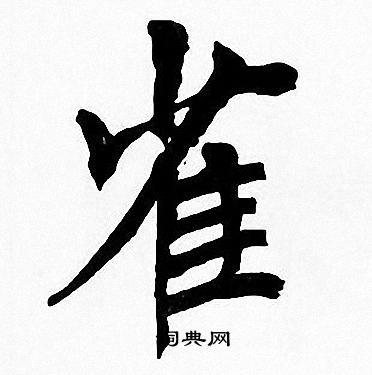 雀
词典网